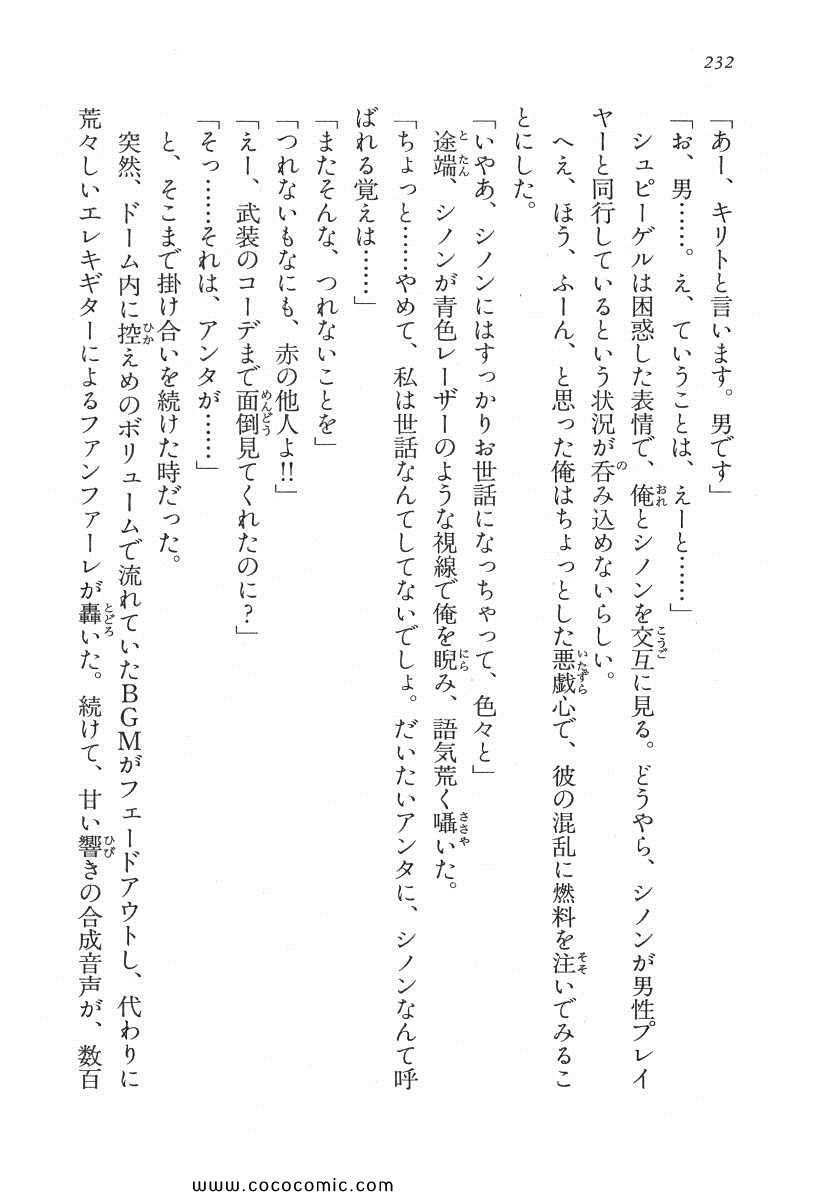 232
「あー、キリトと言います。男です」
「お、男……。え、ていうことは、えーと……」
シュピーゲルは困惑した表情で、俺とシノンを交互に見る。どうやら、シノンが男性プレイ
ヤーと同行しているという状況が呑み込めないらしい。
へえ、ほう、ふーん、と思った俺はちょっとした悪戯心で、彼の混乱に燃料を注いでみるこ
とにした。
「いやあ、シノンにはすっかりお世話になっちゃって、色々と」
途端、シノンが青色レーザーのような視線で俺を睨み、語気荒く囁いた。
「ちょっと……やめて、私は世話なんてしてないでしょ。だいたいアンタに、シノンなんて呼
ばれる覚えは……」
「またそんな、つれないことを」
「つれないもなにも、赤の他人よ!!」
「えー、武装のコーデまで面倒見てくれたのに?」
「そっ……それは、アンタが……」
と、そこまで掛け合いを続けた時だった。
突然、ドーム内に控えめのボリュームで流れていたＢＧＭがフェードアウトし、代わりに
荒々しいエレキギターによるファンファーレが轟いた。続けて、甘い響きの合成音声が、数百
www.cococomic.com